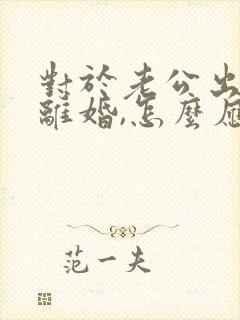 對於老公出
離婚,怎麼
范一夫